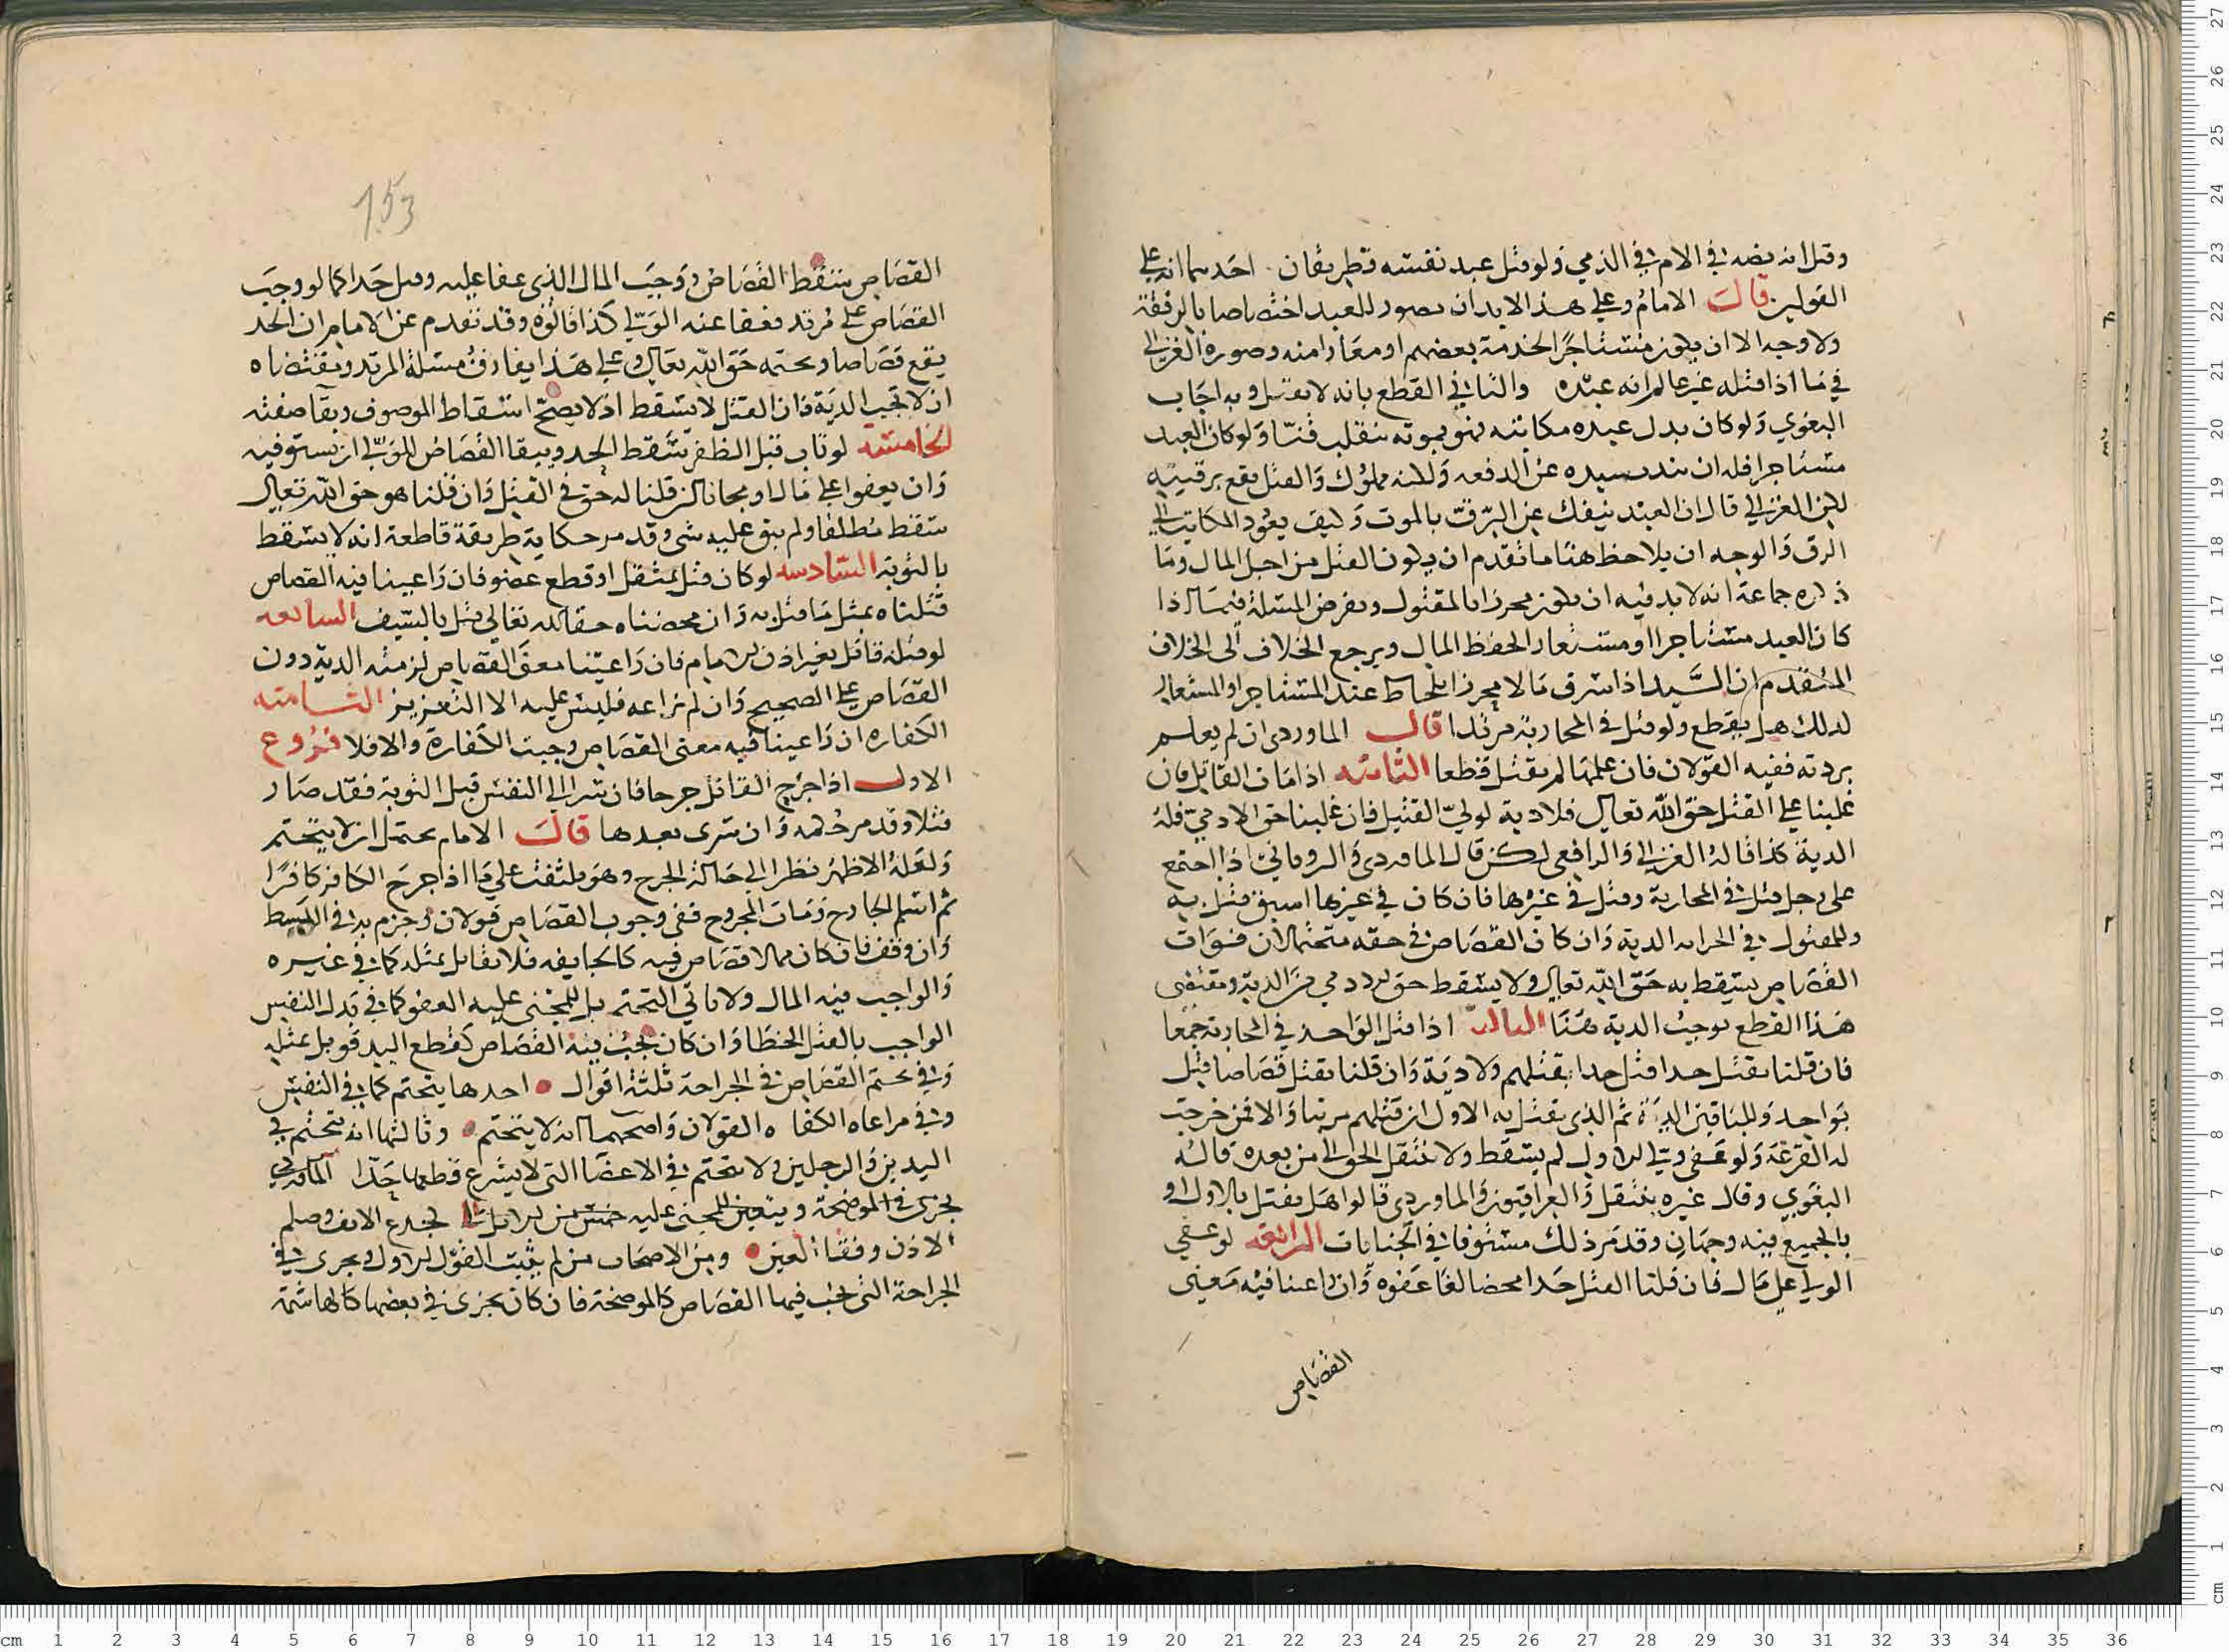 وقيل انه نصه في الام في الذمي ولو قتل عبد نفسه فطريقان احدهما انه على
القولين قال الامام وعلى هذا لابد ان يصور للعبد اختصاصا بالرفقة
ولا وجه الا ان يكون مستاجرا لخدمة بعضهم او معارا منه وصوره الغزالي
في ما اذا قتله غير عالم انه عبده والثاني القطع بانه لا يقتل وبه اجاب
البغوي ولو كان بدل عبده مكاتبه فهو بموته ينقلب قنا ولو كان العبد
مستاجرا فله ان سيده عن الدفعه ولكنه مملوك والقتل يقع برقبته
لكن الغزالي قال ان العبد ينفك عن الرق بالموت وكيف يعود المكاتب الى
الرق والوجه ان يلاحظ هنا ما تقدم ان يكون القتل من اجل المال وما
ذكره جماعة انه لا بد فيه ان يكون محرزا بالمقتول ويفرض المسلة فيما اذا
كان العبد مستاجرا او مستعارا لحفظ المال ويرجع الخلاف الى الخلاف
المتقدم ان السيد اذا سرق مالا محرزا بلحاظ عبد المستاجر او المستعار
لذلك هل يقطع ولو قتل في المحاربة مرتدا قال الماوردي ان لم يعلم
بردته ففيه القولان فان علمها لم يقتل قطعا الثانيه اذا مات القاتل فان
غلبنا على القتل حق الله تعالى فلا دية لولي القتيل فان غلبنا حق الادمي فله
الدية كذا قاله الغزالي والرافعي لكن قال الماوردي والروياني اذا اجتمع
على رجل قتل في المحاربة وقتل في غيرها فان كان في غيرها اسبق قتل به
وللمقتول في الحرابه الدية وان كان القصاص في حقه متحتما لان فوات
القصاص يسقط به حق الله تعالى ولا يسقط حق الادمي من الدية ومقتضى
هذا القطع بوجوب الدية هنا الثالث اذا قتل الواحد في المحاربة جمعا
فان قلنا يقتل حدا قتل حدا بقتلهم ولا دية وان قلنا يقتل قصاصا قتل
بواحد وللباقين الدية ثم الذي يقتل به الاول ان قتلهم مرتبا والا فمن خرجت
له القرعة ولو عفى ولي الاول لم يسقط ولا ينتقل الحق الى من بعده قاله
البغوي وقال غيره ينتقل والعراقيون والماوردي قالوا هل يقتل بالاول او
بالجميع فيه وجهان وقد مر ذلك مستوفا في الجنايات الرابعه لو عفى
الولي على مال فان قلنا القتل حدا محضا لغا عفوه وان راعينا فيه معنى
القصاص
153
القصاص سقط القصاص ووجب المال الذي عفا عليه وقتل حدا كما لو وجب
القصاص على مرتد فعفا عنه الولي كذا قالوه وقد تقدم عن الامام ان الحد
يقع قصاصا وتحتمه حق الله تعالى وعلى هذا يفارق مسلة المرتد ومقتضاه
ان لا تجب الدية فان القتل لا يسقط اذ لا يصح اسقاط الموصوف وبقا صفته
الخامسه لو تاب قبل الظفر سقط الحد ويبقا القصاص للولي ان يستوفيه
وان يعفوا على مال او مجانا ان قلنا له حق في القتل وان قلنا هو حق الله تعالى
سقط مطلقا ولم يبق عليه شي وقد مر حكاية طريقة قاطعة انه لا يسقط
بالتوبة السادسه لو كان قتل بمثقل او قطع عضو فان راعينا فيه القصاص
قتلناه بمثل ما قتل به وان محضناه حقا لله تعالى قتل بالسيف السابعه
لو قتله قاتل بغير اذن الامام فان راعينا معنى القصاص لزمته الدية دون
القصاص على الصحيح وان لم نراعه فليس عليه الا التعزير الثامنه
الكفاره ان راعينا فيه معنى القصاص وجبت الكفارة والا فلا فروع
الاول اذا جرح القاتل جرحا فان سرا الى النفس قبل التوبة فقد صار
قتلا وقد مر حكمه وان سرى بعدها قال الامام يحتمل ان لا يتحتم
ولعله الاظهر نظرا الى حالة الجرح وهو ملتفت على ما اذا جرح الكافر كافرا
ثم اسلم الجارح ومات المجروح ففي وجوب القصاص قولان وجزم به في البسيط
وان وقف فان كان مما لا قصاص فيه كالجايفه فلا يقابل بمثله كما في غيره
والواجب فيه المال ولا ياتي التحتم بل للمجني عليه العفو كما في بدل النفس
الواجب بالقتل الخطا وان كان يجب فيه القصاص كقطع اليد قوبل بمثله
وفي تحتم القصاص في الجراحة ثلثة اقوال احدها يتحتم كما في النفس
وفي مراعاه الكفا ه القولان واصحهما انه لا يتحتم وثالثها انه يتحتم في
اليدين والرجلين ولا يتحتم في الاعضا التي لا يشرع قطعها حدا الماوردي
يجزى في الموضحة للمجنى عليه لجدع الانف وصلم
الاذن وفقا العين ومن الاصحاب من لم يثبت القول الاول ويجرى في
الجراحة التي يجب فيها القصاص كالموضحة فان كان يجزى في بعضها كالهاشمة